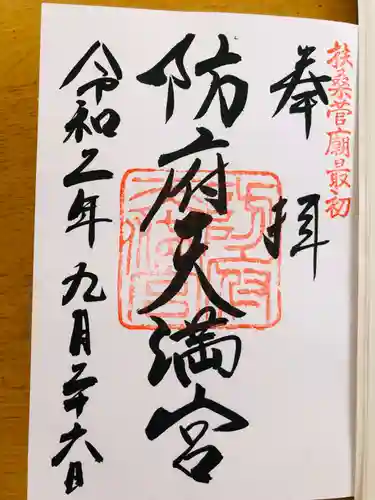 扶桑菅廟最初
奉拝
防府天満宮
令和二年九月二十六日
防府天満宮